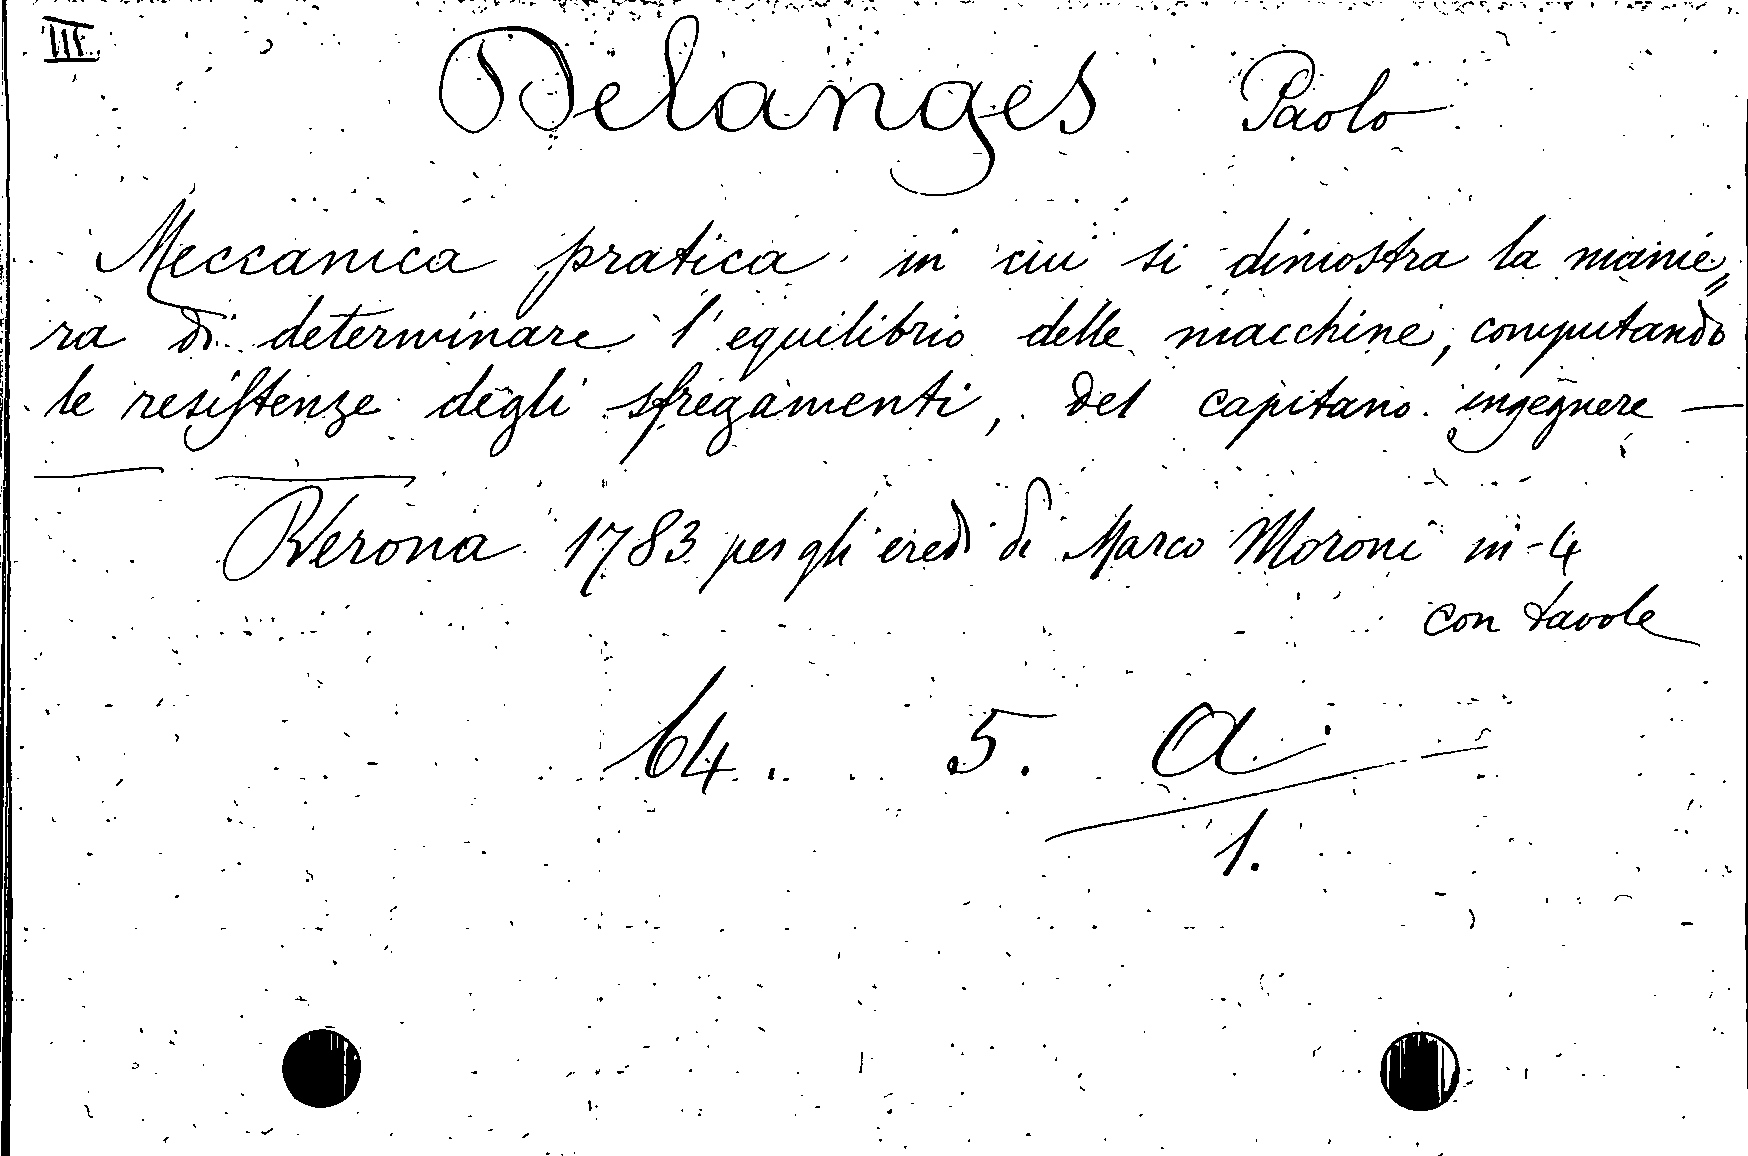 III.
Delanges Paolo
Meccanica pratica in cui si dimostra la manie„
ra di determinare l'equilibrio delle macchine, computando
le resistenze degli sfregamenti, del capitano ingegnere —
— —
Verona 1783 per gli eredi di Marco Moroni in-4
con tavole
64. 5. a
1.